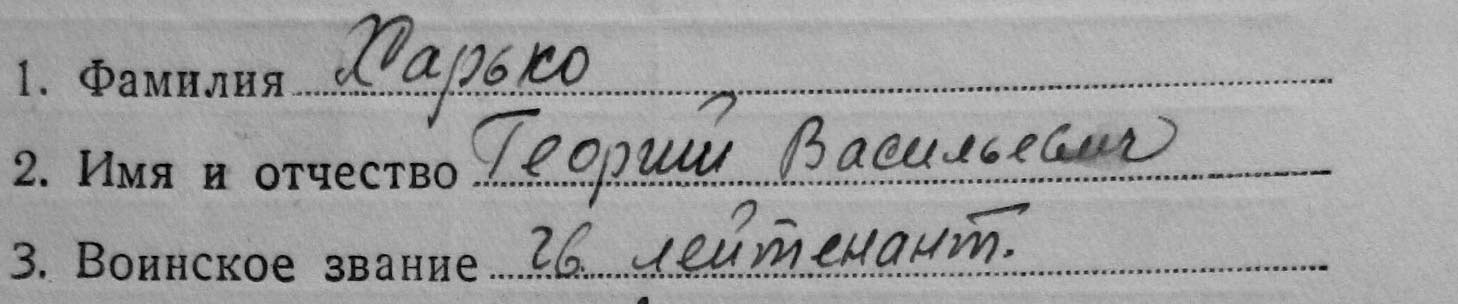 1. Фамилия Харько
2. Имя и отчество Георгий Васильевич
3. Воинское звание гв. лейтенант.